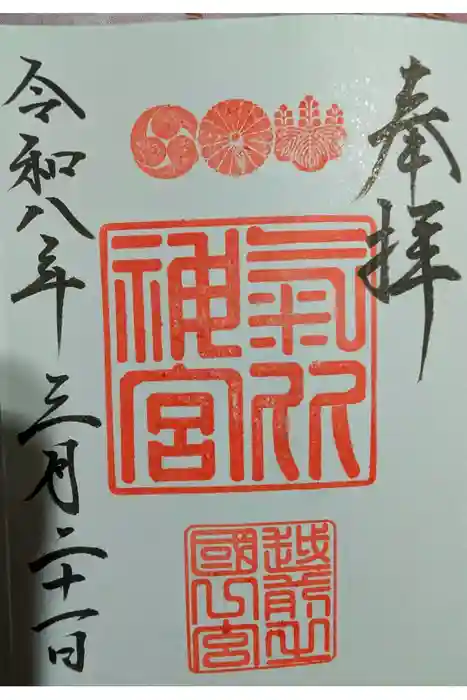 奉拝
氣比
神宮
越前之
國一宮
令和八年三月二十一日